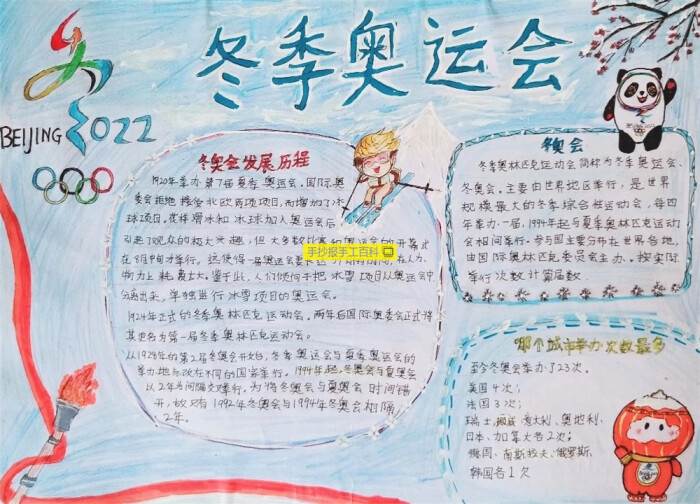 冬季奥运会
BEIJING 2022
冬奥会发展历程
1920年举办第7届夏季奥运会,国际奥
委会拒绝接受北欧两项项目,而增加了冰
球项目,花样滑冰和冰球加入奥运会后,
引起了观众的极大兴趣,但大多数比赛
奥运会的开幕式
在8月中旬才举行。这使得一届奥运会要
在人力、
物力上耗费太大。鉴于此,人们倾向于把冰雪项目从奥运会中
分离出来,单独进行冰雪项目的奥运会。
1924年正式的冬季奥林匹克运动会。两年后国际奥委会正式将
其更名为第一届冬季奥林匹克运动会。
从1928年的第2届冬奥会开始,冬季奥运会与夏季奥运会的
举办地点改在不同的国家举行。1994年起,冬奥会与夏奥会
以2年为间隔交叉举行。为将冬奥会与夏奥会时间错
开,故只有1992年冬奥会与1994年冬奥会相隔
2年。
手抄报手工百科
冬奥会
冬季奥林匹克运动会简称为冬季奥运会、
冬奥会。主要由世界地区举行,是世界
规模最大的冬季综合性运动会,每四
年举办一届,1994年起与夏季奥林匹克运动
会相间举行。参与国主要分布在世界各地,
由国际奥林匹克委员会主办。按实际
举行次数计算届数。
哪个城市举办次数最多
至今冬奥会举办了23次。
美国4次;
法国3次;
瑞士、挪威、意大利、奥地利、
日本、加拿大各2次;
德国、南斯拉夫、俄罗斯、
韩国各1次